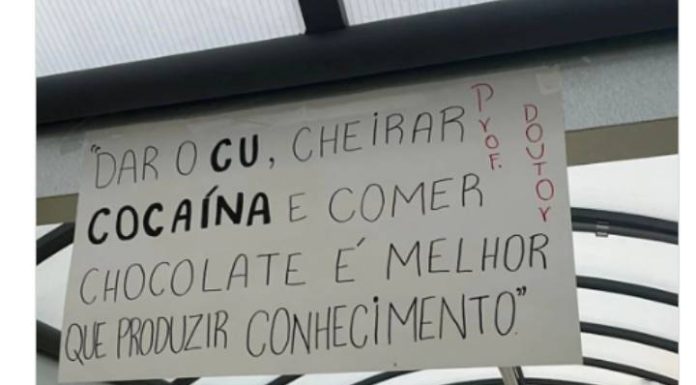 "DAR O CU, CHEIRAR
COCAÍNA E COMER
CHOCOLATE É MELHOR
QUE PRODUZIR CONHECIMENTO".
Prof.
DOUTOr